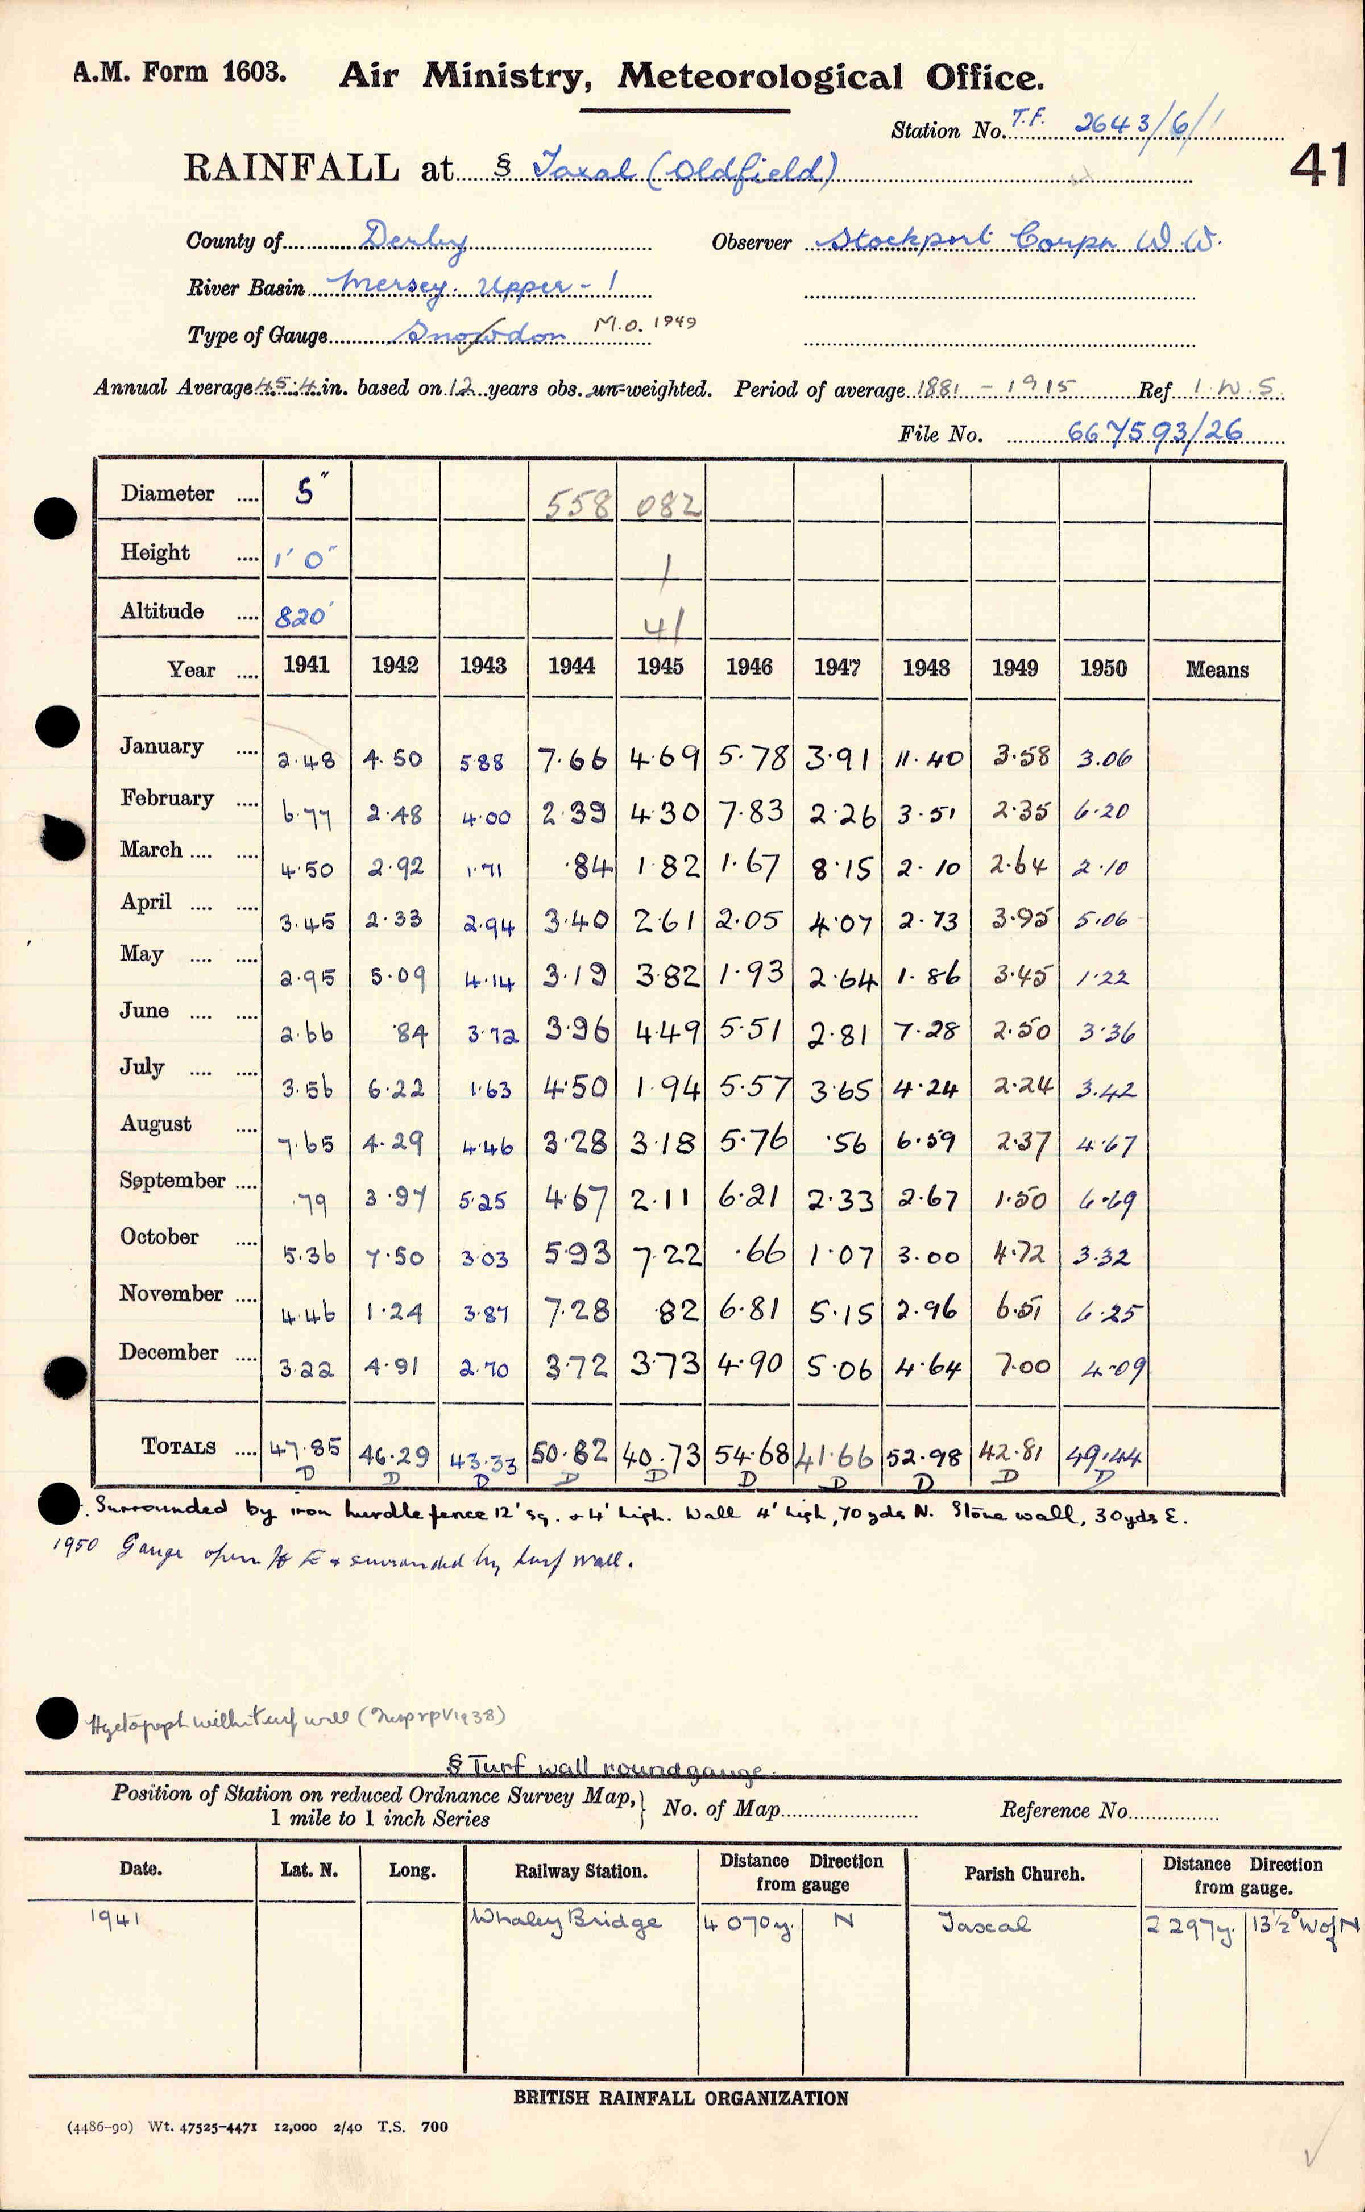 A.M. Form 1603. Air Ministry, Meteorological Office.
Station No. T.F. 2643/6/1
41
RAINFALL at § Taxal (Oldfield)
County of Derby Observer Stockport Corpn W.W.
River Basin Mersey. Upper - 1
Type of Gauge Snowdon M.O. 1949
Annual Average 45.4 in. based on 12 years obs. un-weighted. Period of average 1881 - 1915 Ref I.W.S.
File No. 667593/26
Diameter .... 5" 558 082
Height .... 1' 0" 1
Altitude .... 820' 41
Year .... 1941 1942 1943 1944 1945 1946 1947 1948 1949 1950 Means
January .... 2.48 4.50 5.88 7.66 4.69 5.78 3.91 11.40 3.58 3.06
February .... 6.77 2.48 4.00 2.39 4.30 7.83 2.26 3.51 2.35 6.20
March .... .... 4.50 2.92 1.71 .84 1.82 1.67 8.15 2.10 2.64 2.10
April .... .... 3.45 2.33 2.94 3.40 2.61 2.05 4.07 2.73 3.95 5.06
May .... .... 2.95 5.09 4.14 3.19 3.82 1.93 2.64 1.86 3.45 1.22
June .... .... 2.66 .84 3.72 3.96 4.49 5.51 2.81 7.28 2.50 3.36
July .... .... 3.56 6.22 1.63 4.50 1.94 5.57 3.65 4.24 2.24 3.42
August .... 7.65 4.29 4.46 3.28 3.18 5.76 .56 6.59 2.37 4.67
September .... .79 3.97 5.25 4.67 2.11 6.21 2.33 2.67 1.50 6.69
October .... 5.36 7.50 3.03 5.93 7.22 .66 1.07 3.00 4.72 3.32
November .... 4.46 1.24 3.87 7.28 .82 6.81 5.15 2.96 6.51 6.25
December .... 3.22 4.91 2.70 3.72 3.73 4.90 5.06 4.64 7.00 4.09
TOTALS .... 47.85 46.29 43.33 50.82 40.73 54.68 41.66 52.98 42.81 49.44
D D D D D D D D D D
Surrounded by iron hurdle fence 12' sq. & 4' high. Wall 4' high, 70 yds N. Stone wall, 30 yds E.
1950 Gauge open to E & surrounded by turf wall.
Hyetograph within turf wall (Insp rp V 1938)
§ Turf wall round gauge.
Position of Station on reduced Ordnance Survey Map, } No. of Map Reference No.
1 mile to 1 inch Series
Date. Lat. N. Long. Railway Station. Distance Direction from gauge Parish Church. Distance Direction from gauge.
1941 Whaley Bridge 4070y. N Taxal 2297y. 13½° W of N
BRITISH RAINFALL ORGANIZATION
(4486-90) Wt. 47525-4471 12,000 2/40 T.S. 700